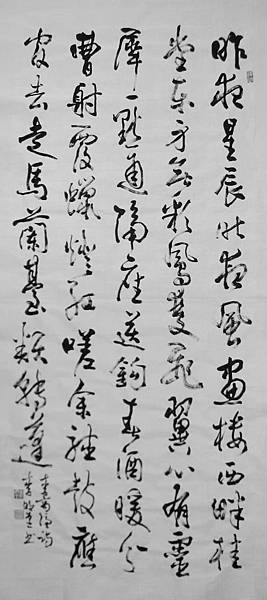 昨夜星辰昨夜風畫樓西畔桂
堂東身無彩鳳雙飛翼心有靈
犀一點通隔座送鉤春酒暖分
曹射覆蠟燈紅嗟余聽鼓應
官去走馬蘭臺類轉蓬
李商隱詩